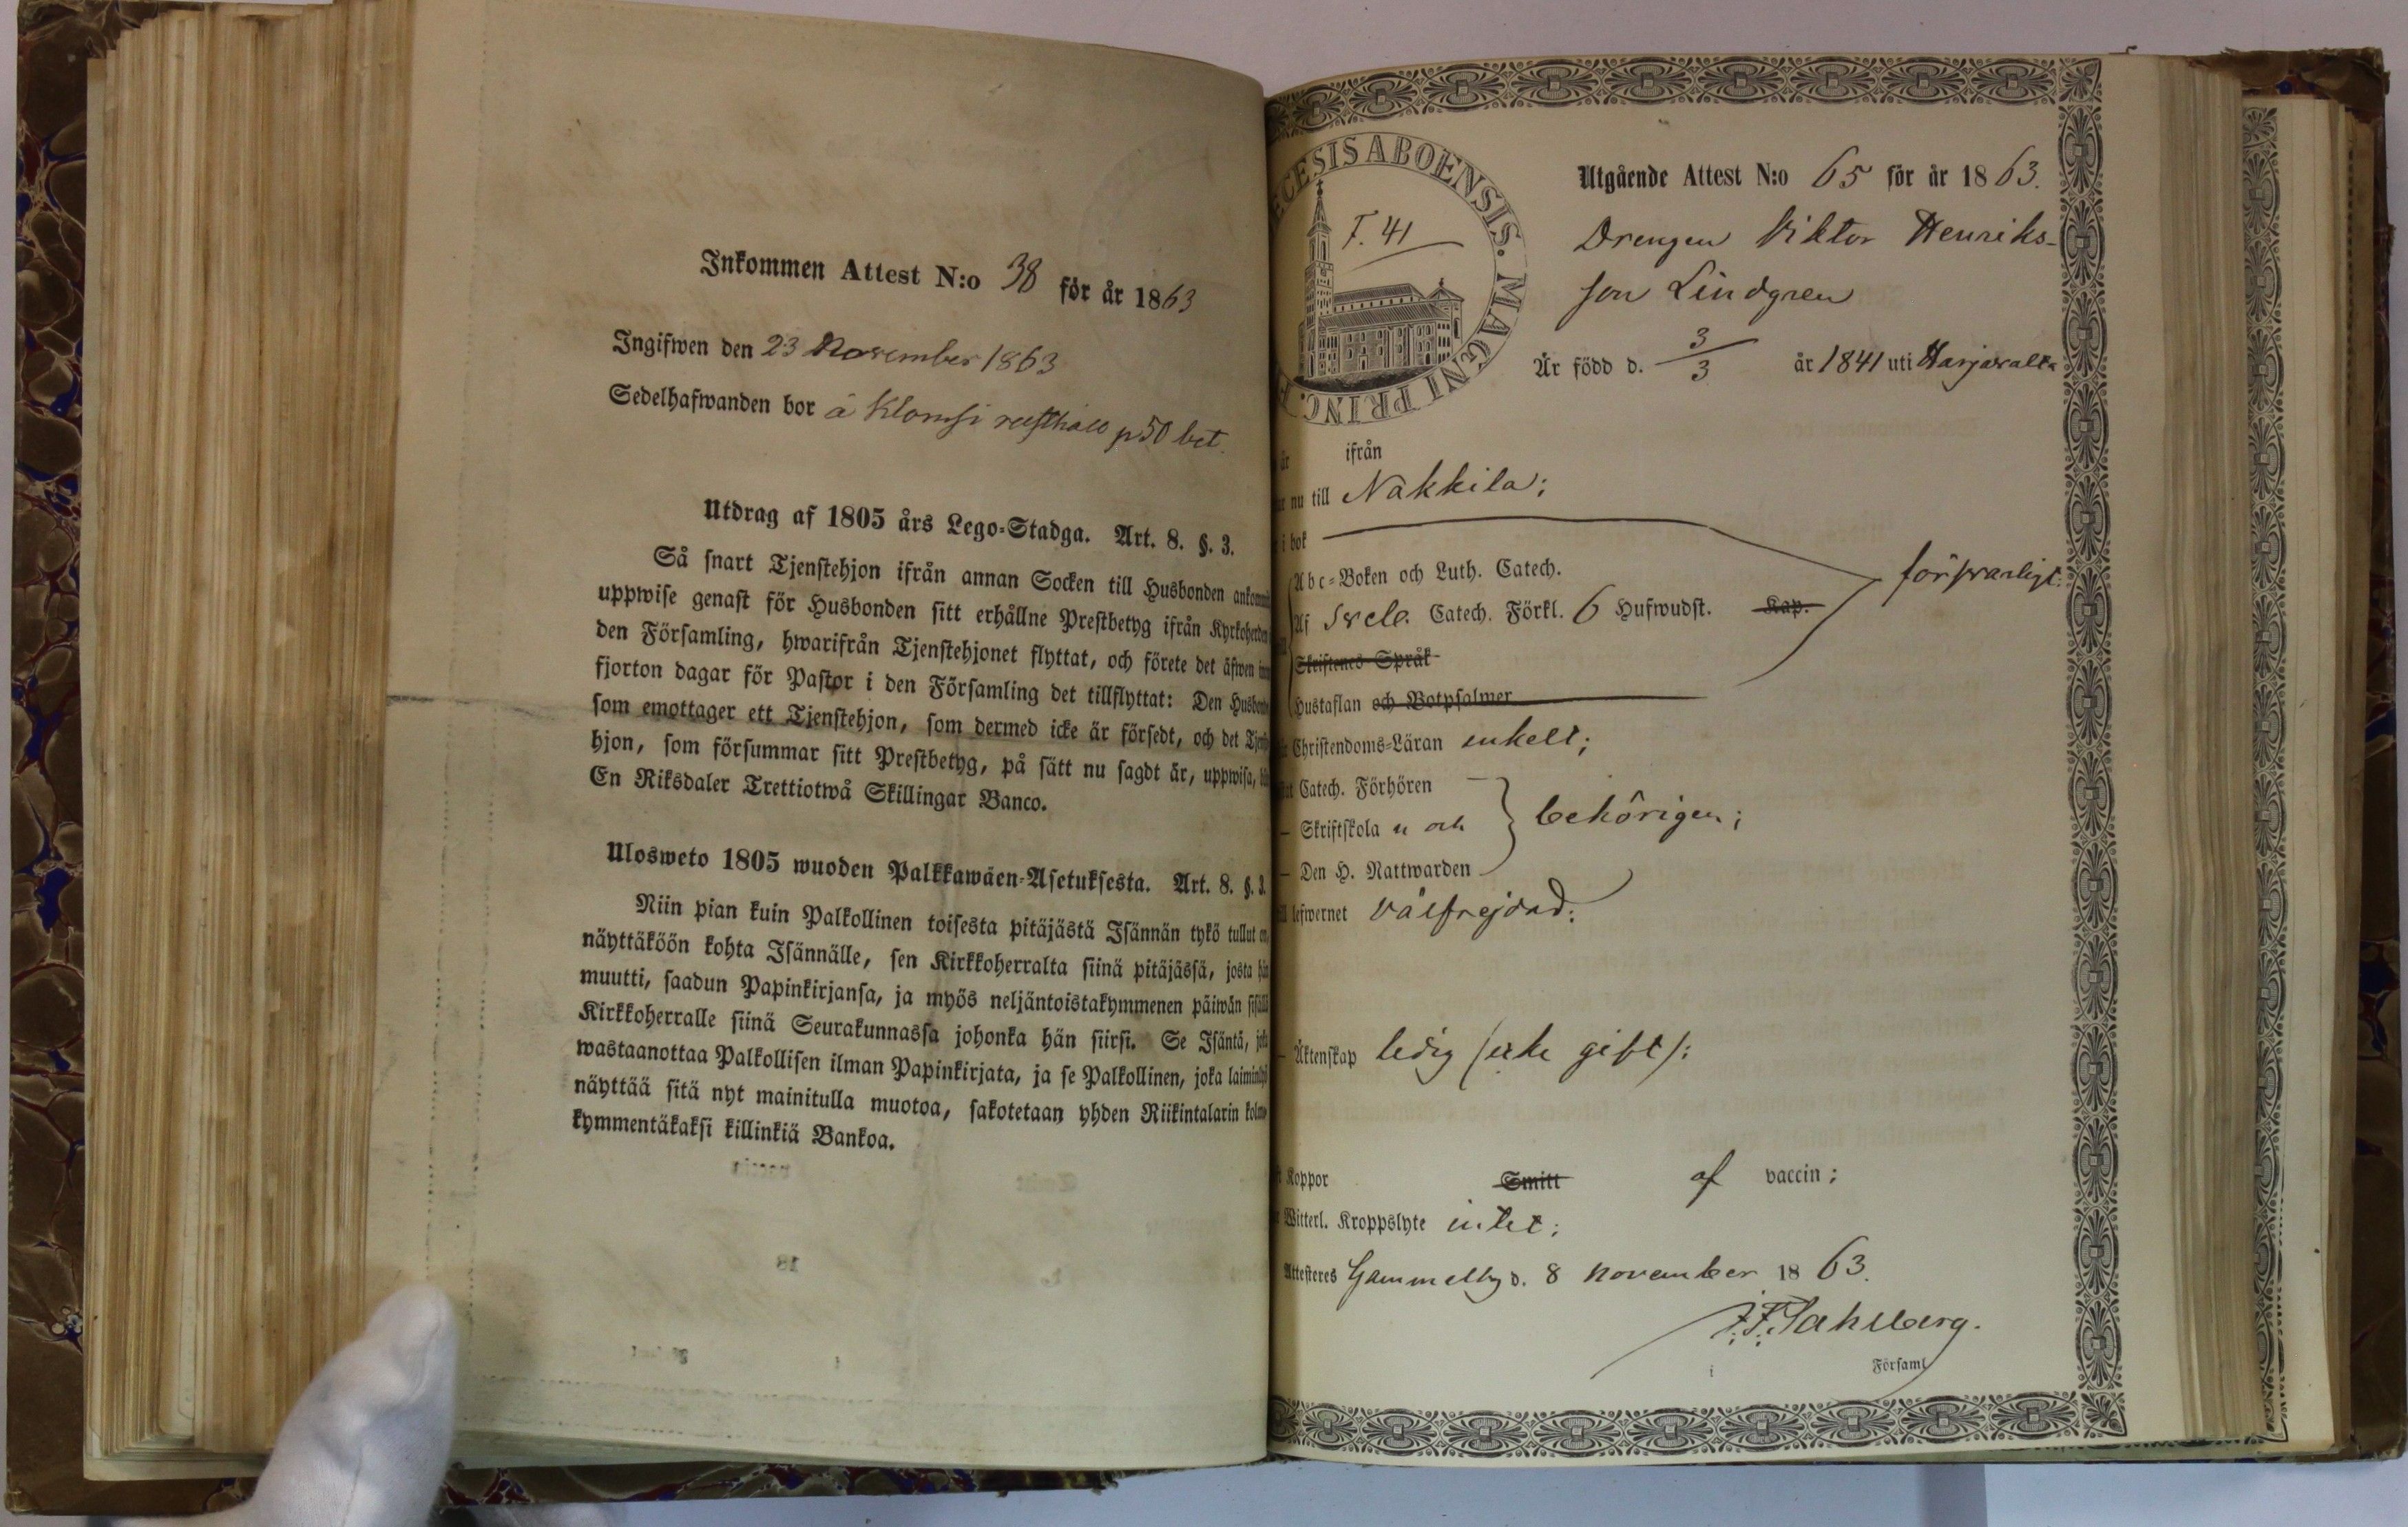 Inkommen Attest N:o 38 för år 1863
Ingifwen den 23 November 1863
Sedelhafwanden bor å Klomsi rusthåll p 50 bet.
Utdrag af 1805 års Lego-Stadga. Art. 8. §. 3.
Så snart Tjenstehjon ifrån annan Socken till Husbonden
uppwise genast för Husbonden sitt erhållne Prestbetyg ifrån
den Församling, hwarifrån Tjenstehjonet flyttat, och förete det äfwen
fjorton dagar för Pastor i den Församling det tillflyttat: Den
som emottager ett Tjenstehjon, som dermed icke är försedt, och det
hjon, som försummar sitt Prestbetyg, på sätt nu sagdt är, uppwisa,
En Riksdaler Trettiotwå Skillingar Banco.
Ulosweto 1805 wuoden Palkkawäen-Asetuksesta. Art. 8. §. 3.
Niin pian kuin Palkollinen toisesta pitäjästä Isännän tykö tullut on,
näyttäköön kohta Isännälle, sen Kirkkoherralta siinä pitäjässä, josta hän
muutti, saadun Papinkirjansa, ja myös neljäntoistakymmenen päiwän sisällä
Kirkkoherralle siinä Seurakunnassa johonka hän siirsi. Se Isäntä, joka
wastaanottaa Palkollisen ilman Papinkirjata, ja se Palkollinen, joka
näyttää sitä nyt mainitulla muotoa, sakotetaan yhden Riikintalarin kolme-
kymmentäkaksi killinkiä Bankoa.
ECESIS ABOENSIS. MAGNI PRINC.
F. 41
Utgående Attest N:o 65 för år 1863.
Drengen Viktor Henriks-
son Lindgren
Är född d. 3/3 år 1841 uti Harjavalta
är ifrån
nu till Nakkila;
i bok
Abc-Boken och Luth. Catech.
Af Svebe. Catech. Förkl. 6 Hufwudst. Kap.
försvarligt:
Skriftenes Språk
Hustaflan och Botpsalmer
Christendoms-Läran enkelt;
Catech. Förhören
– Skriftskola n och
behörigen;
– Den H. Nattwarden
lefwernet välfrejdad:
– Äktenskap ledig (icke gift):
Koppor Smitt af vaccin;
Witterl. Kroppslyte intet;
Attesteres Gammelby d. 8 November 1863.
i Församl